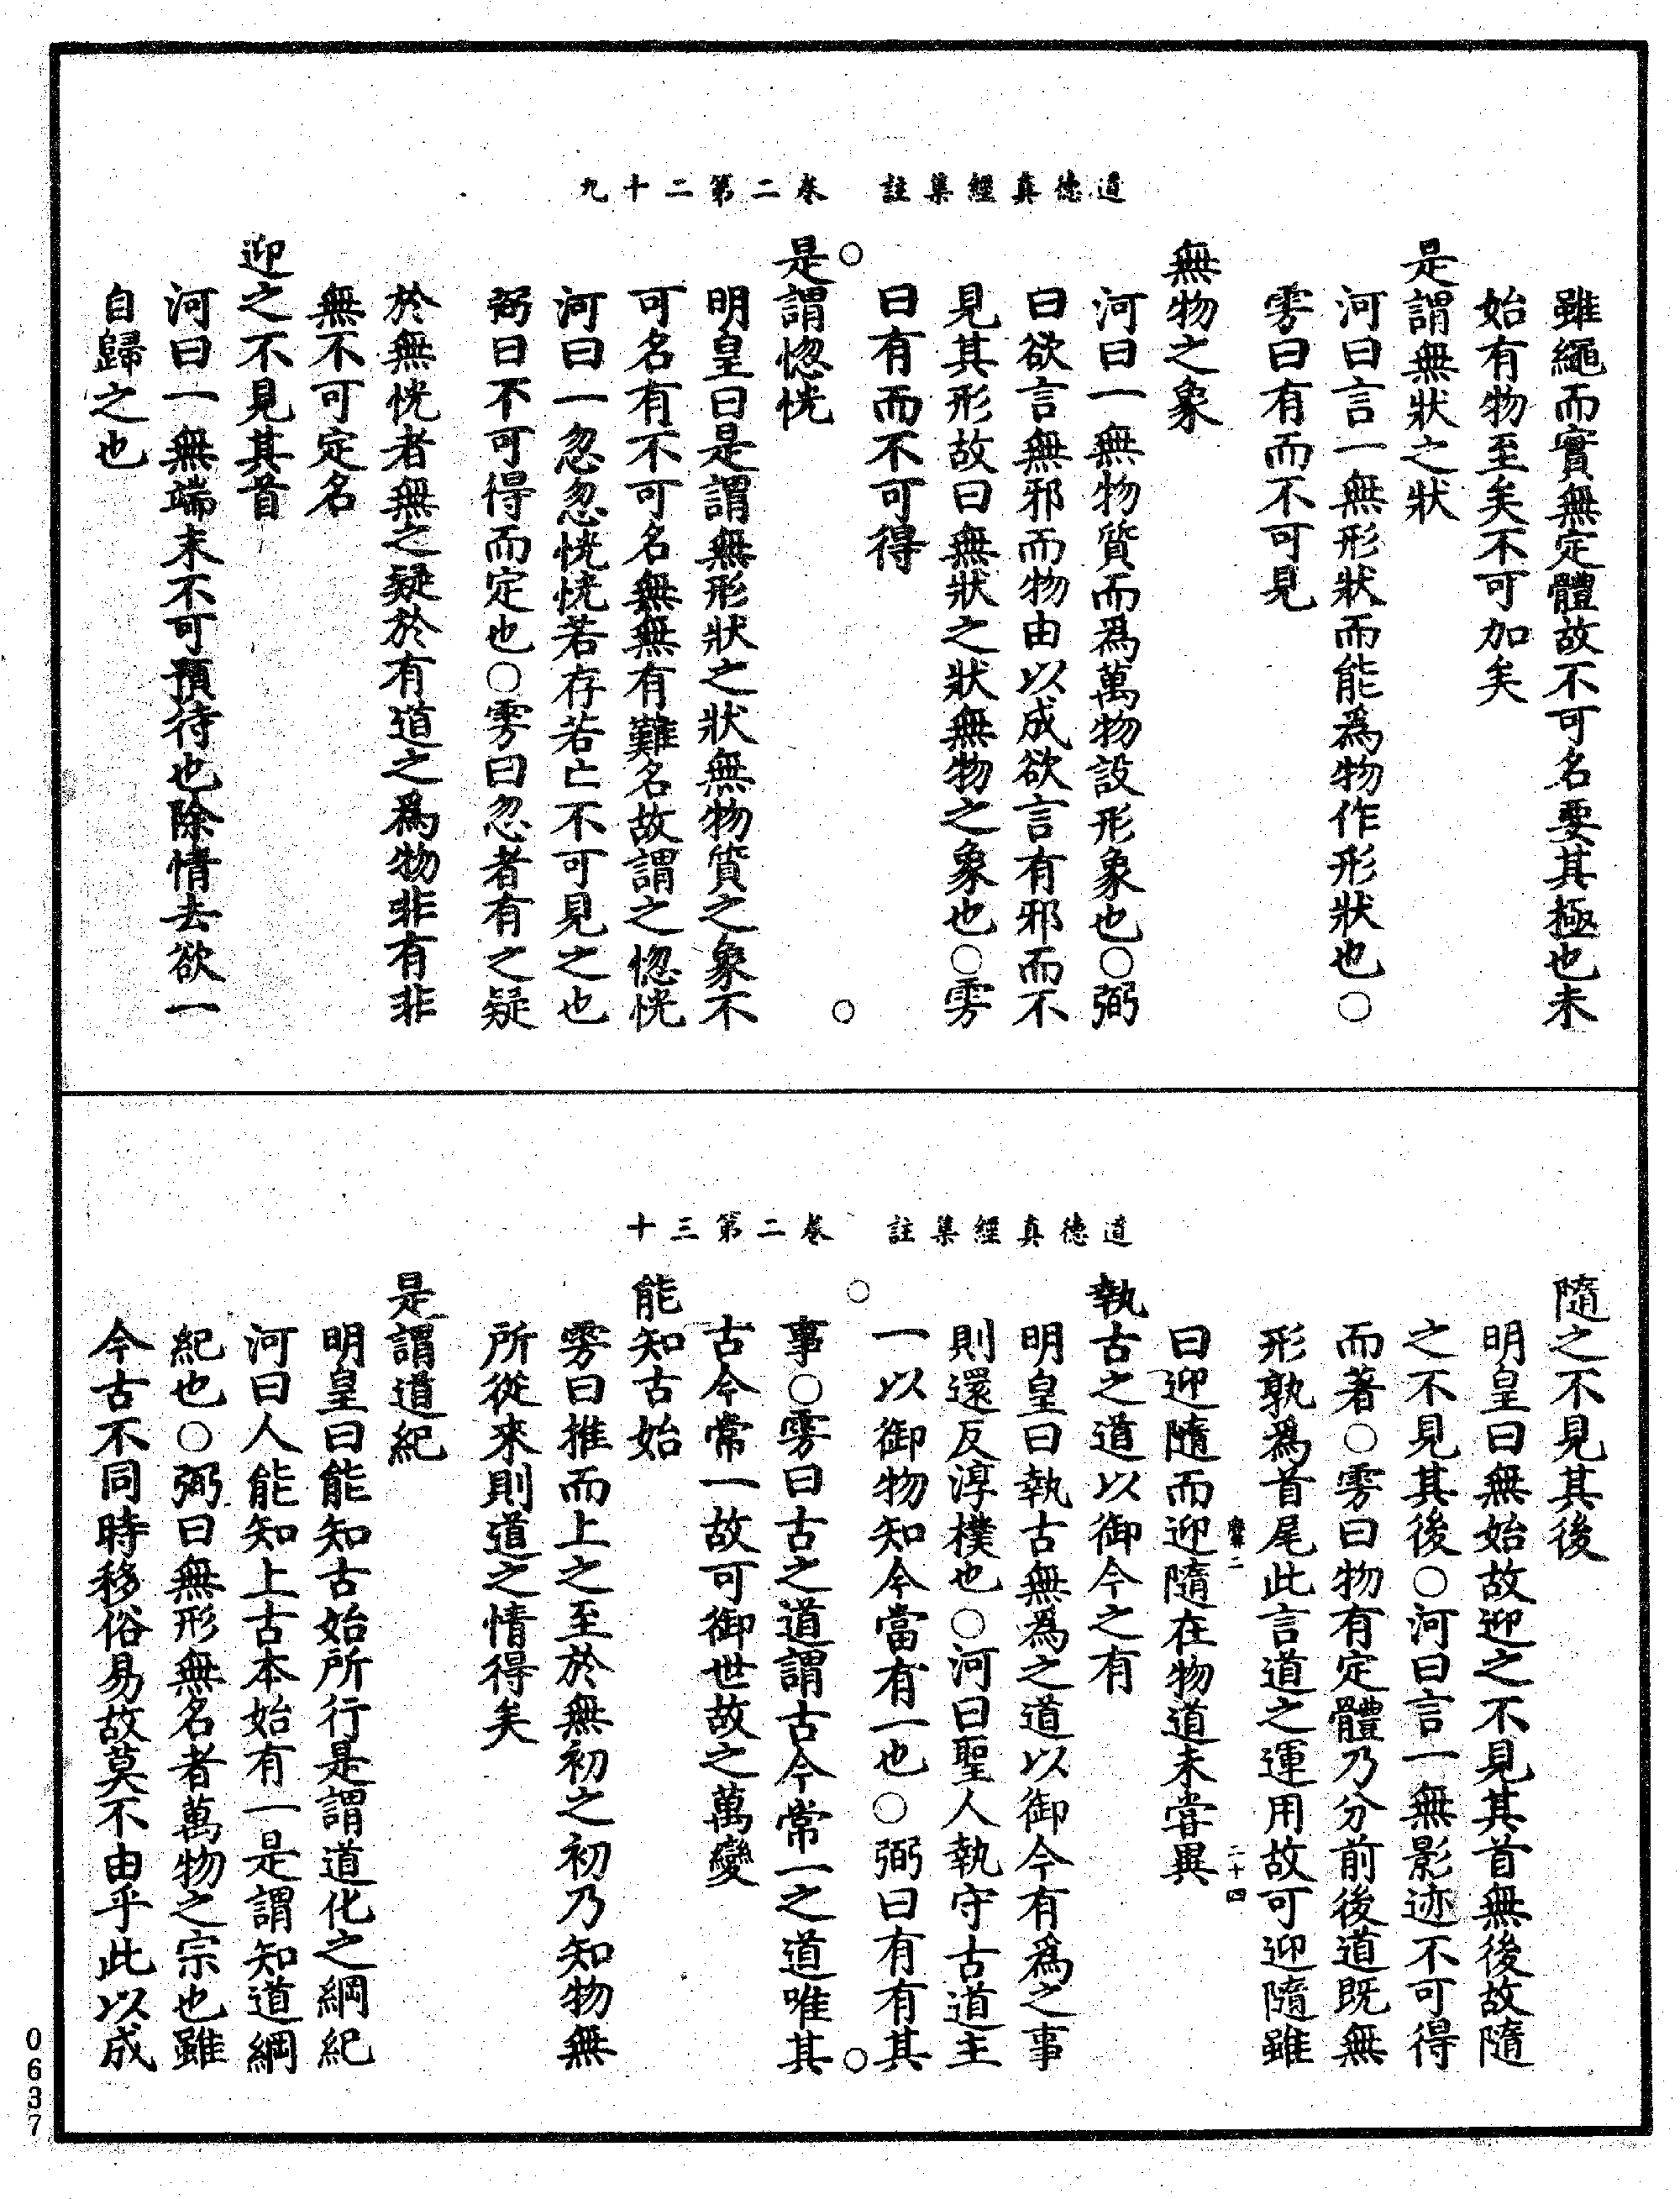 道德真經集註　卷二第二十九
雖繩而實無定體故不可名要其極也未
始有物至矣不可加矣
是謂無狀之狀
河曰言一無形狀而能爲物作形狀也○
雱曰有而不可見
無物之象
河曰一無物質而爲萬物設形象也○弼
曰欲言無邪而物由以成欲言有邪而不
見其形故曰無狀之狀無物之象也○雱
曰有而不可得
○　○
是謂惚恍
明皇曰是謂無形狀之狀無物質之象不
可名有不可名無無有難名故謂之惚恍
河曰一忽忽恍恍若存若亡不可見之也
弼曰不可得而定也○雱曰忽者有之疑
於無恍者無之疑於有道之爲物非有非
無不可定名
迎之不見其首
河曰一無端末不可預待也除情去欲一
自歸之也
道德真經集註　卷二第三十
隨之不見其後
明皇曰無始故迎之不見其首無後故隨
之不見其後○河曰言一無影迹不可得
而著○雱曰物有定體乃分前後道既無
形孰爲首尾此言道之運用故可迎隨雖
二　二十四
曰迎隨而迎隨在物道未嘗異
執古之道以御今之有
明皇曰執古無爲之道以御今有爲之事
則還反淳樸也○河曰聖人執守古道主
一以御物知今當有一也○弼曰有有其
○　○
事○雱曰古之道謂古今常一之道唯其
古今常一故可御世故之萬變
能知古始
雱曰推而上之至於無初之初乃知物無
所從來則道之情得矣
是謂道紀
明皇曰能知古始所行是謂道化之綱紀
河曰人能知上古本始有一是謂知道綱
紀也○弼曰無形無名者萬物之宗也雖
今古不同時移俗易故莫不由乎此以成
0637